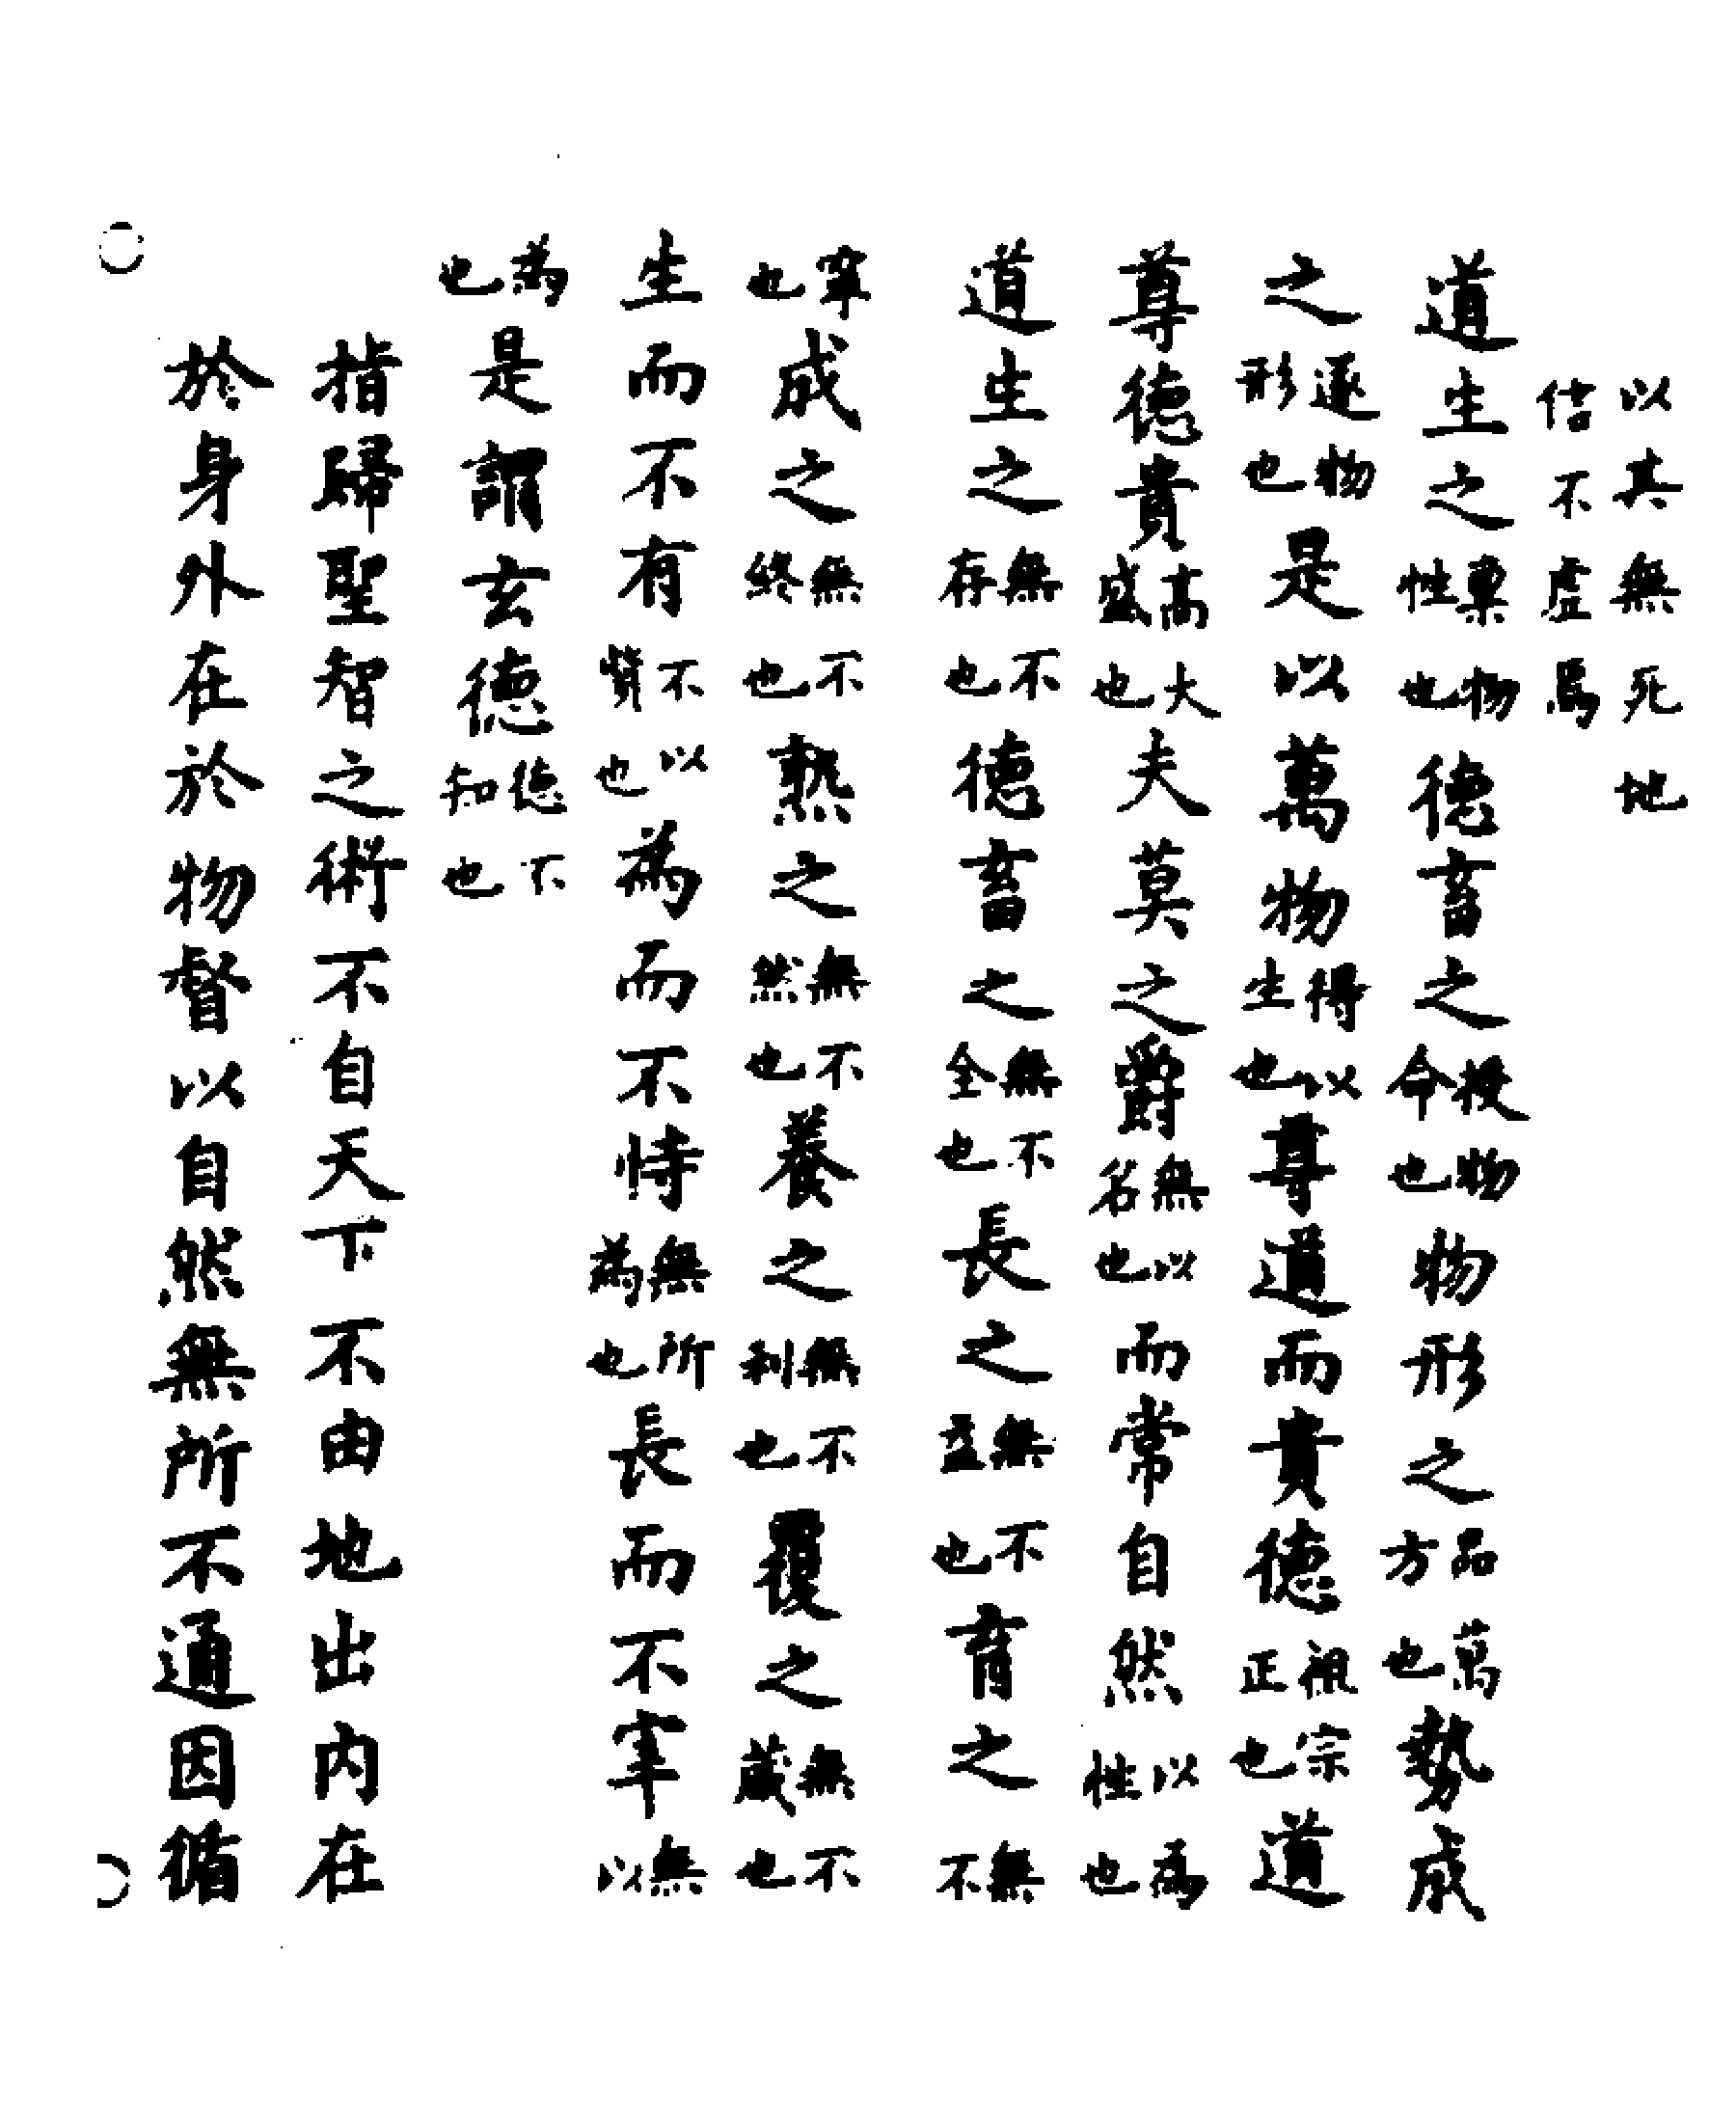 以其無死地估不虛焉
道生之稟物性也德畜之授物命也物形之品萬方也勢成
之逐物形也是以萬物得以生也尊道而貴德祖宗正也道
尊德貴高大盛也夫莫之爵無以名也而常自然以為性也
道生之無不存也德畜之無不全也長之無不益也育之無不
宰也成之無不終也熟之無不然也養之無不利也覆之無不藏也
生而不有不以也為而不恃無所為也長而不宰無以
為也是謂玄德德不知也
指歸聖智之術不自天下不由地出內在
於身外在於物督以自然無所不通因循